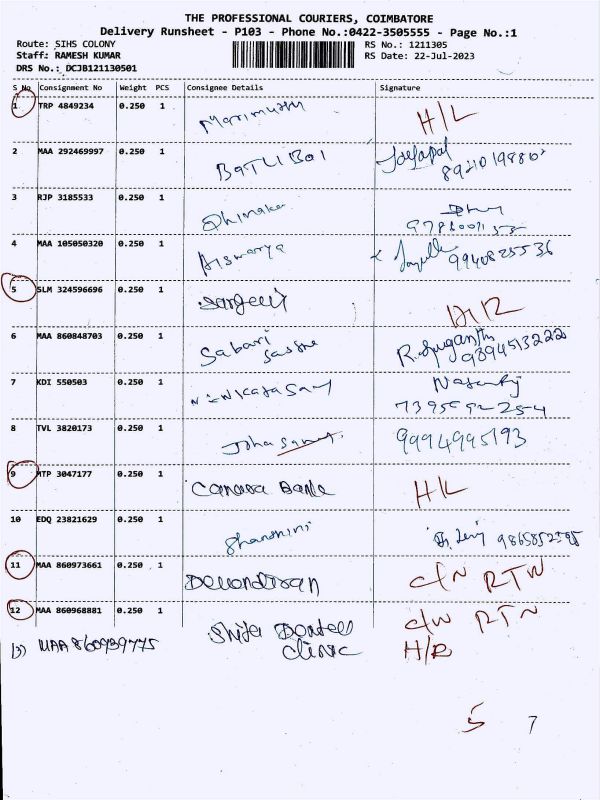 THE PROFESSIONAL COURIERS, COIMBATORE
Delivery Runsheet - P103 - Phone No.:0422-3505555 - Page No.:1
Route: SIHS COLONY RS No.: 1211305
Staff: RAMESH KUMAR RS Date: 22-Jul-2023
DRS No.: DCJB121130501
S No Consignment No Weight PCS Consignee Details Signature
1 TRP 4849234 0.250 1 H/L
2 MAA 292469997 0.250 1 BATLIBOI Jayapal
3 RJP 3185533 0.250 1
4 MAA 105050320 0.250 1 Aiswarya 9940825536
5 SLM 324596696 0.250 1 H/R
6 MAA 860848703 0.250 1 Sabari R. Suganthi
9894513222
7 KDI 550503 0.250 1
8 TVL 3820173 0.250 1 9994995193
9 MTP 3047177 0.250 1 Canara Bank H/L
10 EDQ 23821629 0.250 1 Shanthini
11 MAA 860973661 0.250 1 Devendiran C/N RTN
12 MAA 860968881 0.250 1 Shifa Dental C/N RTN
Clinic H/R
13) MAA 860939775
5 7